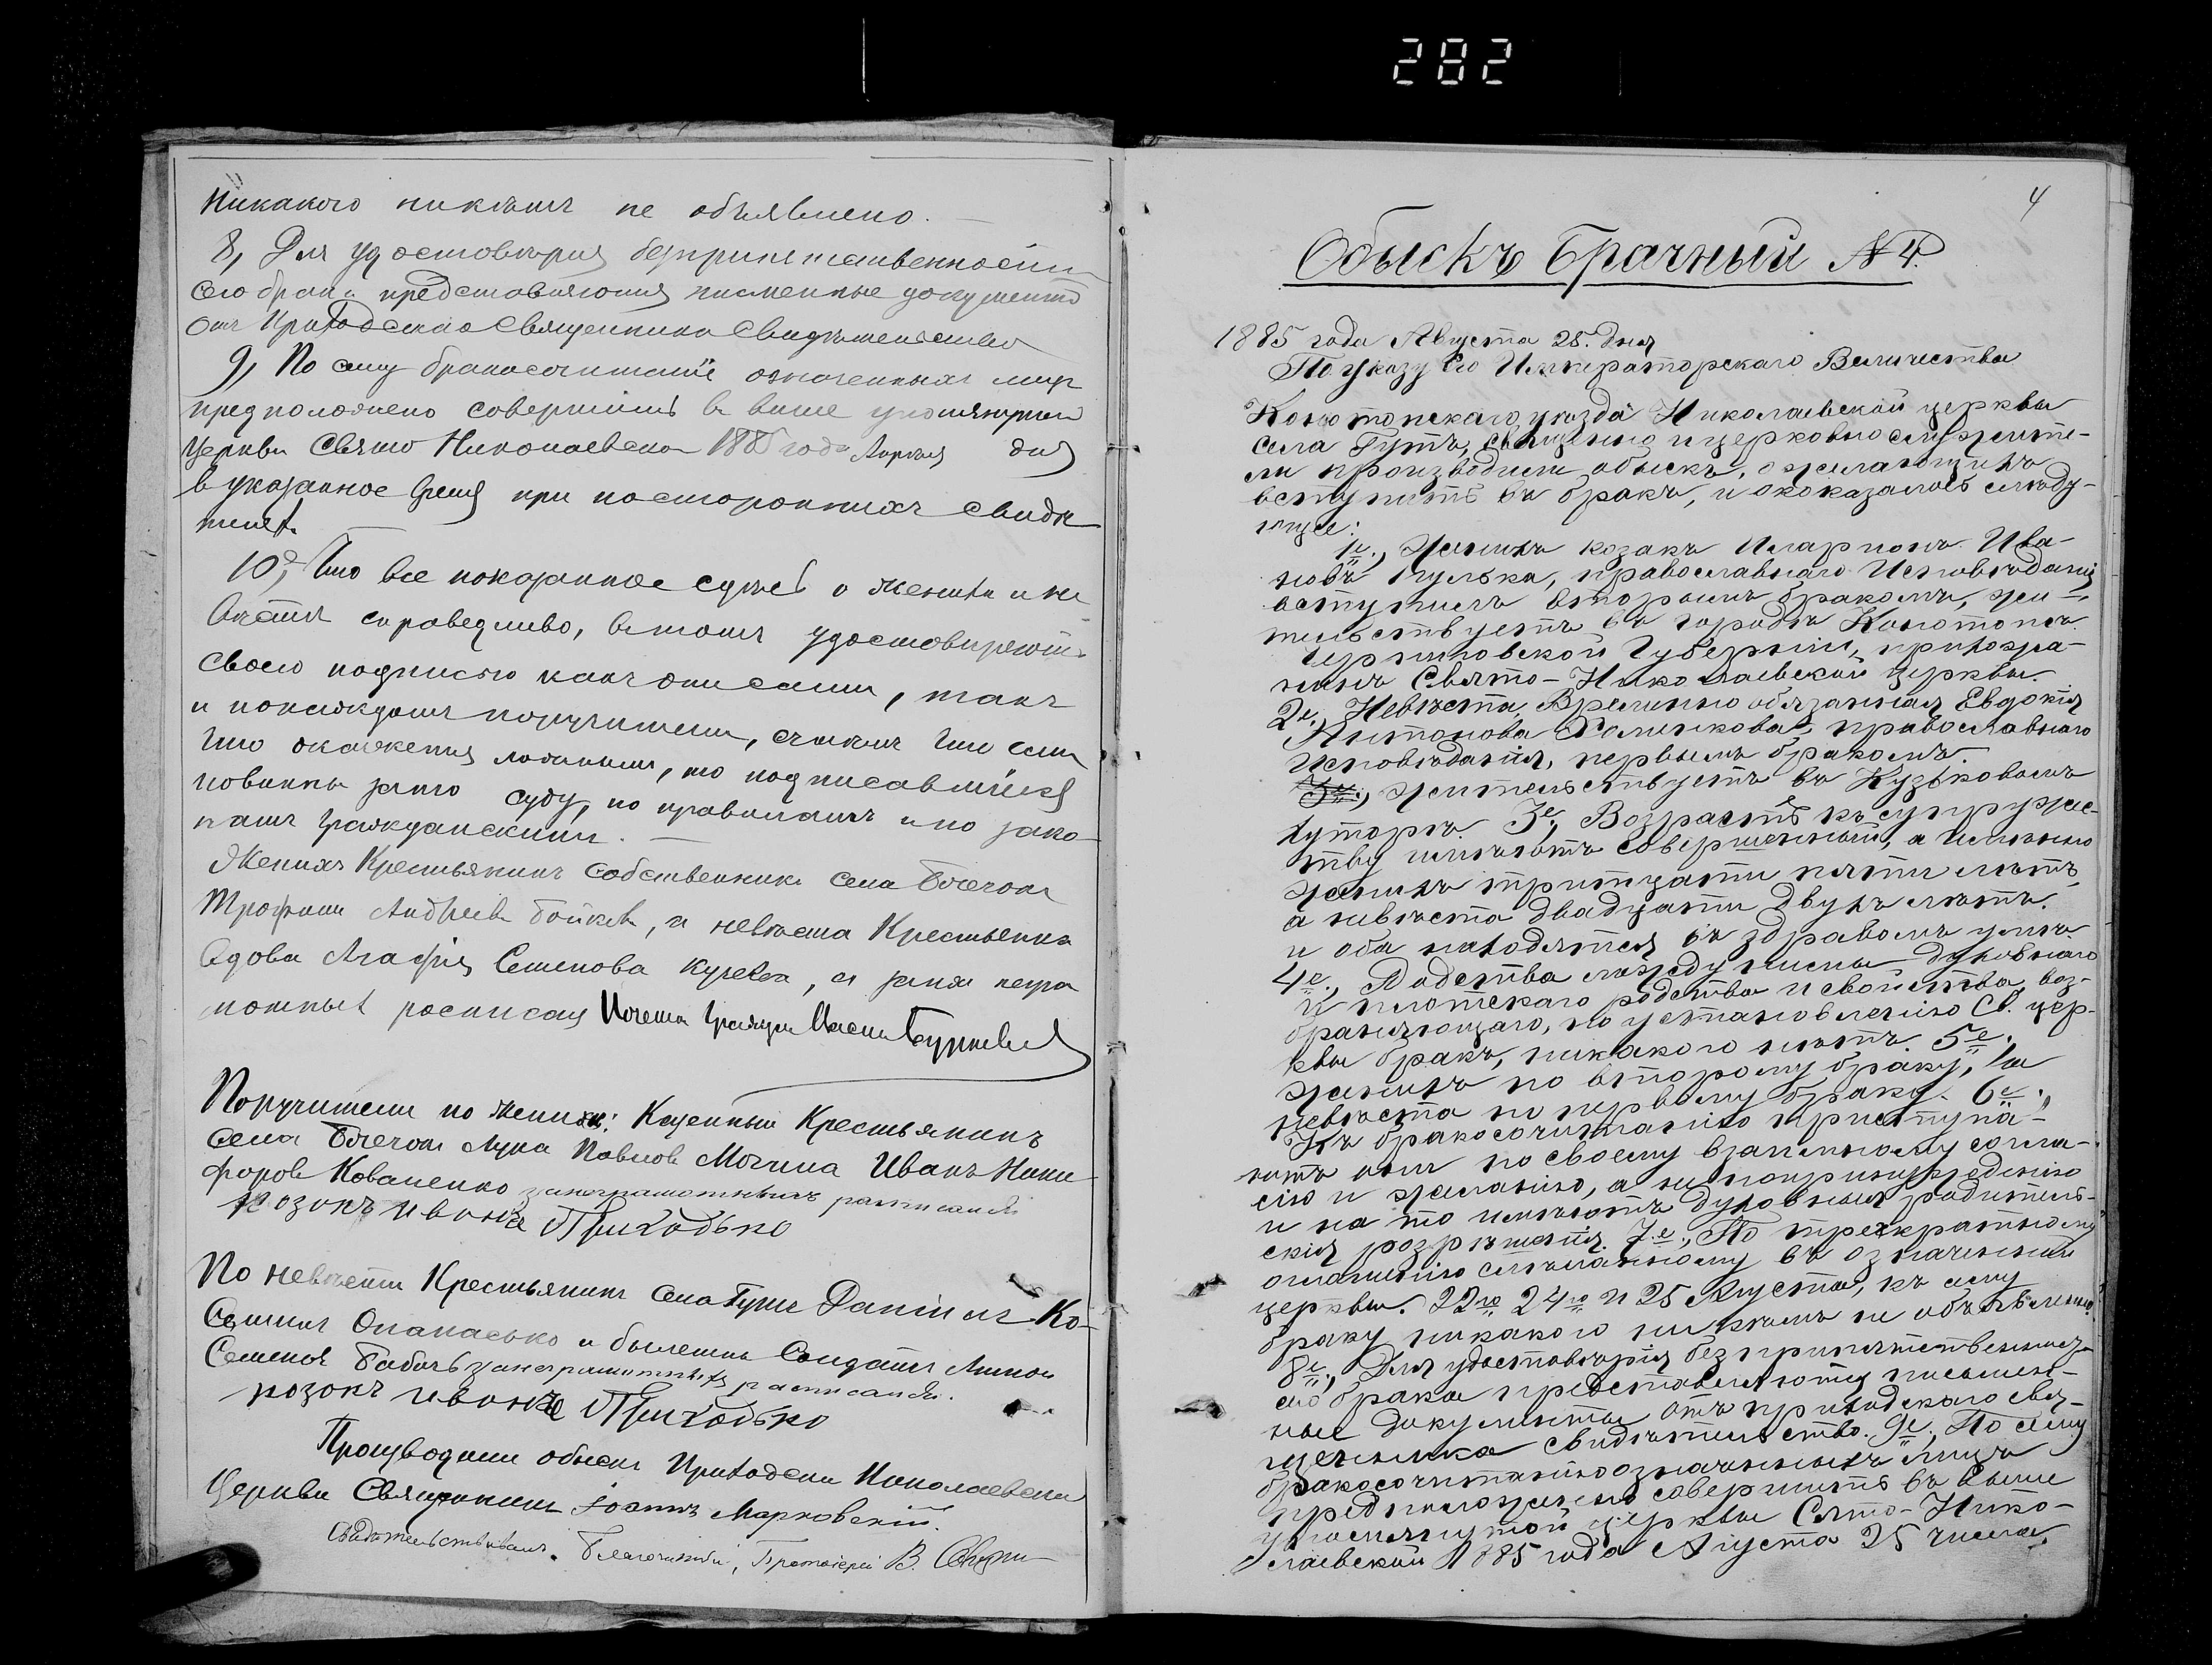 282
никакого никѣмъ не объявлено.
8, Для удостовѣрія безприпятственности
сего брака представляются писменные документы
отъ Приходскаго Священника Свидѣтельство
9, По сему бракосочитаніе означенныхъ лицъ
предположено совершить въ выше упомянутой
Церкви Свято Николаевской 1885 года Апреля дня
в указанное время при постороннихъ свидѣ
телях.
10, Что все показанное здѣсь о женихѣ и не
вѣстѣ справедливо, въ томъ удостовиряютъ
своею подписью какъ они сами, такъ
и по каждомъ поручители, съ тѣмъ что если
что окажется ложнымъ, то подписавшійся
повинны за то суду, по правиламъ и по зако
намъ гражданскимъ.
Женихъ Крестьянинъ собственникъ села
Трофимъ Андреевъ Бойко, и невѣста Крестьянка
вдова Агафія Семенова, а за них негра
мотныхъ росписался
Поручители по женихѣ: Казенный Крестьянинъ
села Лука Павловъ Могила Иванъ Ники
форов Коваленко за неграмотныхъ расписался
козакъ Иванъ Приходько
По невѣсти Крестьянинъ села Гутъ Даніилъ Ко-
Опанасько и билетный Солдатъ
Семеновъ Бабичъ за неграмотныхъ расписался.
козакъ Иванъ Приходько
Производили обыскъ Приходской Николаевской
Церкви Священникъ Іоаннъ Марковскій.
Свидѣтельствовалъ. Благочинный, Протоіерей В.
4
Обыскъ Брачный №4.
1885 года Августа 25. дня
По указу Его Императорскаго Величества
Конотопскаго уѣзда Николаевской церквы
села Гутъ, священно и церковно служите-
ли производили обыскъ, о желающихъ
вступить въ бракъ, и ококазалось слѣду-
ющее:
1е., Женихъ козакъ Иларионъ Ива-
новъ Гулька, православнаго Исповѣданія
вступилъ вторымъ бракомъ, жи-
тельствуетъ въ городѣ Конотопѣ
Черниговской Губерніи, прихожа-
нинъ Свято-Николаевской Церквы.
2е., Невѣста, Временно обязанная Евдокія
Антонова Хоменкова, православнаго
Исповѣданія, первымъ бракомъ.
3е., жительствуетъ въ Кузьковомъ
хуторѣ. 3е., Возрастъ къ супружес-
тву имѣютъ совершенный, а именно
женихъ тритцати пяти лѣтъ,
а нивѣста двадцати двухъ лѣтъ.
и оба находятся въ здравомъ умѣ
4е., Родства между ними духовнаго
и плотскаго родства и свойства, воз-
браняющаго, по установленію Св. цер-
квы бракъ, никакого нѣтъ. 5е.,
женихъ по второму браку, а
невѣста по первому браку. 6е.,
Къ бракосочитанію приступа-
ютъ они по своему взаимному согла-
сію и желанію, а не по принужденію
и на то имѣютъ духовныя родитель-
скія розрѣшенія. 7е., По трехкратному
оглашенію сдѣланному въ означенной
церквы. 22го 24го и 25 Августа, къ сему
браку никакого никѣмъ не объявлено.
8е., Для удостовѣрія безприпятственнаго
сего брака предъставляются писмен-
ные документы отъ приходскаго свя-
щенника свидѣтельство. 9е., По сему
бракосочитанію означенныхъ лицъ
предположено совершить въ выше
упомянутой церквы Сято-Нико-
лаевской 1885 года Августа 25 числа